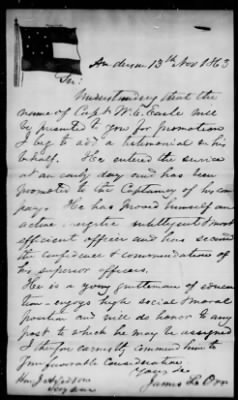 Anderson 13th Nov 1863
Sir:
Understanding that the
name of Capt W. E. Earle will
be presented to you for promotion
I beg to add a testimonial in his
behalf. He entered the service
at an early day and has been
promoted to the Captaincy of his com
pany. He has proved himself an
active, energetic intelligent & most
efficient officer and has secured
the confidence & commendation of
his superior officers.
He is a young gentleman of educa
tion - enjoys high social & moral
position and will do honor to any
post to which he may be assigned
I therefore earnestly commend him to
your favorable consideration
Yours &c
James L Orr
Hon J A Seddon
Secy War